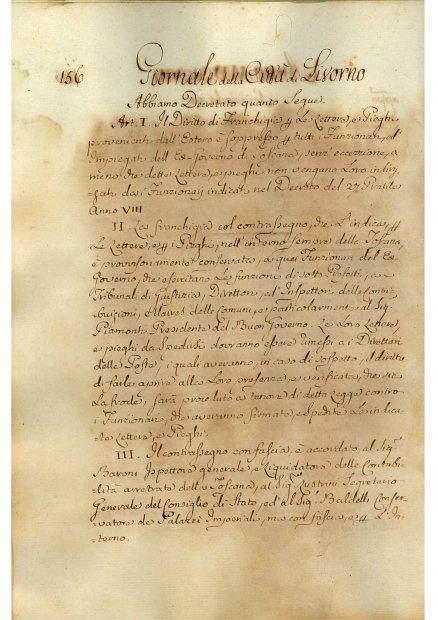 156 Giornale della Città di Livorno
Abbiamo Decretato quanto Segue.
Art. I. Il Diritto di Franchigia p. le Lettere, e Pieghi
provenienti dall'Estero è Soppresso p. tutti i Funzionarj, ed
Impiegati dell'Ex-Governo di Toscana, senz'eccezzione, a
meno che dette Lettere, e pieghi non vengano Loro indiriz-
zati dai Funzionarj indicati nel Decreto del 27 Pratile
Anno VIII
II. La franchigia col contrassegno, che L'indica, p.
le Lettere, e p. i Pieghi, nell'interno sempre della Toscana,
è provvisionalmente conservata, a quei Funzionarj del Ex
Governo, che esercitano Le funzioni di Sotto Prefetti, e
Tribunali di Giustizia, Direttori, ed Inspettori delle Contri-
buzioni, e Maires delle Comuni, e particolarmente al Sig.
Piamonti Presidente del Buon Governo. Le Loro Lettere,
e pieghi da Spedirsi dovranno essere rimessi a i Direttori
delle Poste, i quali averanno, in caso di Sospetto, il diritto
di farle aprire alla Loro presenza, e verificata, che sia
La frode, sarà proceduto a tenore di detta Legge contro
i Funzionarj, che averanno firmato, e Spedite Le indica-
te Lettere, e Pieghi.
III. Il contrassegno con fascia, è accordato al Sig.
Baroni Ispettore generale, e Liquidatore delle Contribu-
arretrate della Toscana, al Sig. Segretario
Generale del Consiglio di Stato, ed al Sig. Baldelli Conser-
vatore de Palazzi Imperiali, ma con fascia, e p. L'In-
terno.